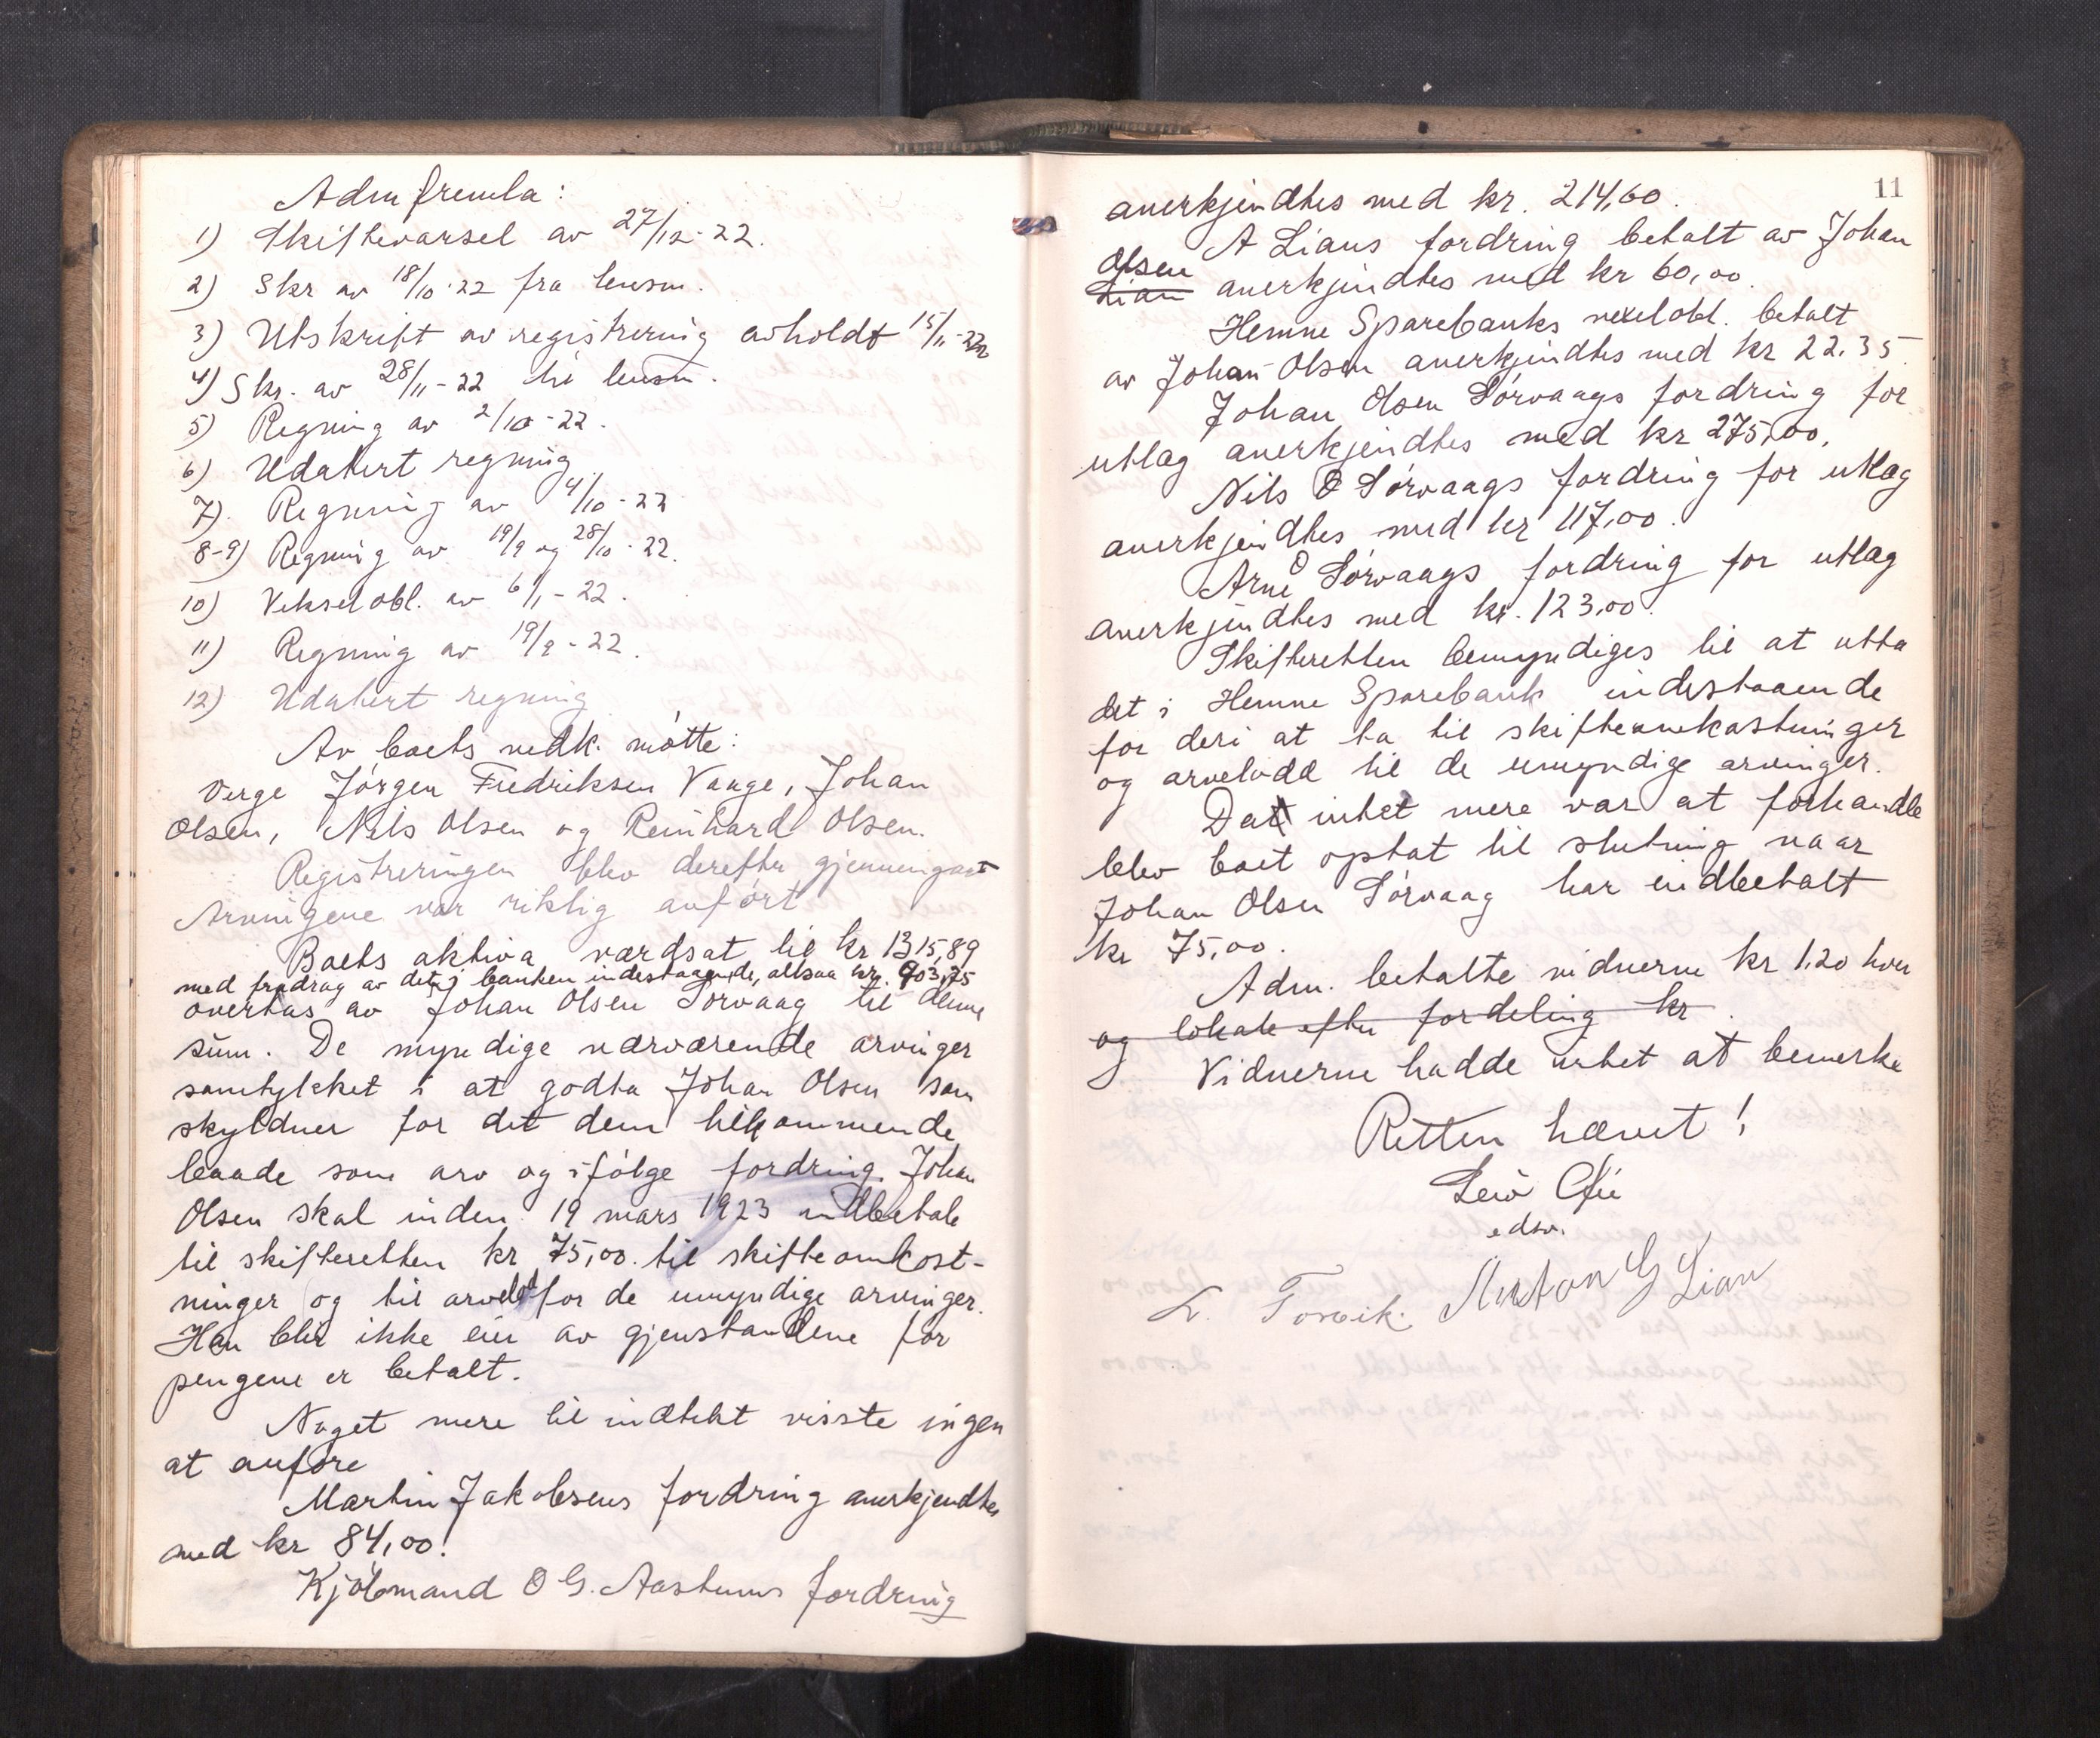 Adm fremla:
1) Skiftevarsel av 27/12-22.
2) Skr av 18/10-22 fra lensm.
3) Utskrift av registrering avholdt 15/11-22
4) Skr. av 28/11-22 til lensm.
5) Regning av 2/10-22.
6) Udatert regning
7) Regning av 4/10-22
8-9) Regning av 19/9 og 28/10-22.
10) Vekselobl. av 6/1-22.
11) Regning av 19/9-22.
12) Udatert regning
Av boets vedk. møtte:
Verge Jørgen Fredriksen Vaage, Johan
Olsen, Nils Olsen og Reinhard Olsen.
Registreringen blev derefter gjennemgaat
Arvingene var riktig anført
Boets aktiva værdsat til kr 1315,89
med fradrag av det i banken indestaaende, altsaa kr. 903,75
overtas av Johan Olsen Sørvaag til denne
sum. De myndige nærværende arvinger
samtykket i at godta Johan Olsen som
skyldner for det dem tilkommende
baade som arv og ifølge fordring. Johan
Olsen skal inden 19 mars 1923 indbetale
til skifteretten kr 75,00 til skifteomkost-
ninger og til arvelod for de umyndige arvinger.
Han blir ikke eier av gjenstandene før
pengene er betalt.
Noget mere til indtekt visste ingen
at anføre
Martin Jakobsens fordring anerkjendtes
med kr 84,00.
Kjøbmand O G. Aastuns fordring
11
anerkjendtes med kr. 214,60.
A Lians fordring betalt av Johan
Olsen
Lian anerkjendtes med kr 60,00.
Hemne Sparebanks vexelobl. betalt
av Johan Olsen anerkjendtes med kr 22.35
Johan Olsen Sørvaags fordring for
utlag anerkjendtes med kr 275,00.
Nils O Sørvaags fordring for utlæg
anerkjendtes med kr 117,00.
Arne O Sørvaags fordring for utlæg
anerkjendtes med kr. 123,00.
Skifteretten bemyndiges til at utta
det i Hemne Sparebank indestaaende
for deri at ta til skifteomkostninger
og arvelodd til de umyndige arvinger.
Da intet mere var at forhandle
blev boet optat til slutning naar
Johan Olsen Sørvaag har indbetalt
kr 75,00.
Adm. betalte vidnerne kr 1,20 hver
og lokale efter fordeling kr
Vidnerne hadde intet at bemerke
Retten hævet!
edsv.
L. Torvik. Anton G Lian